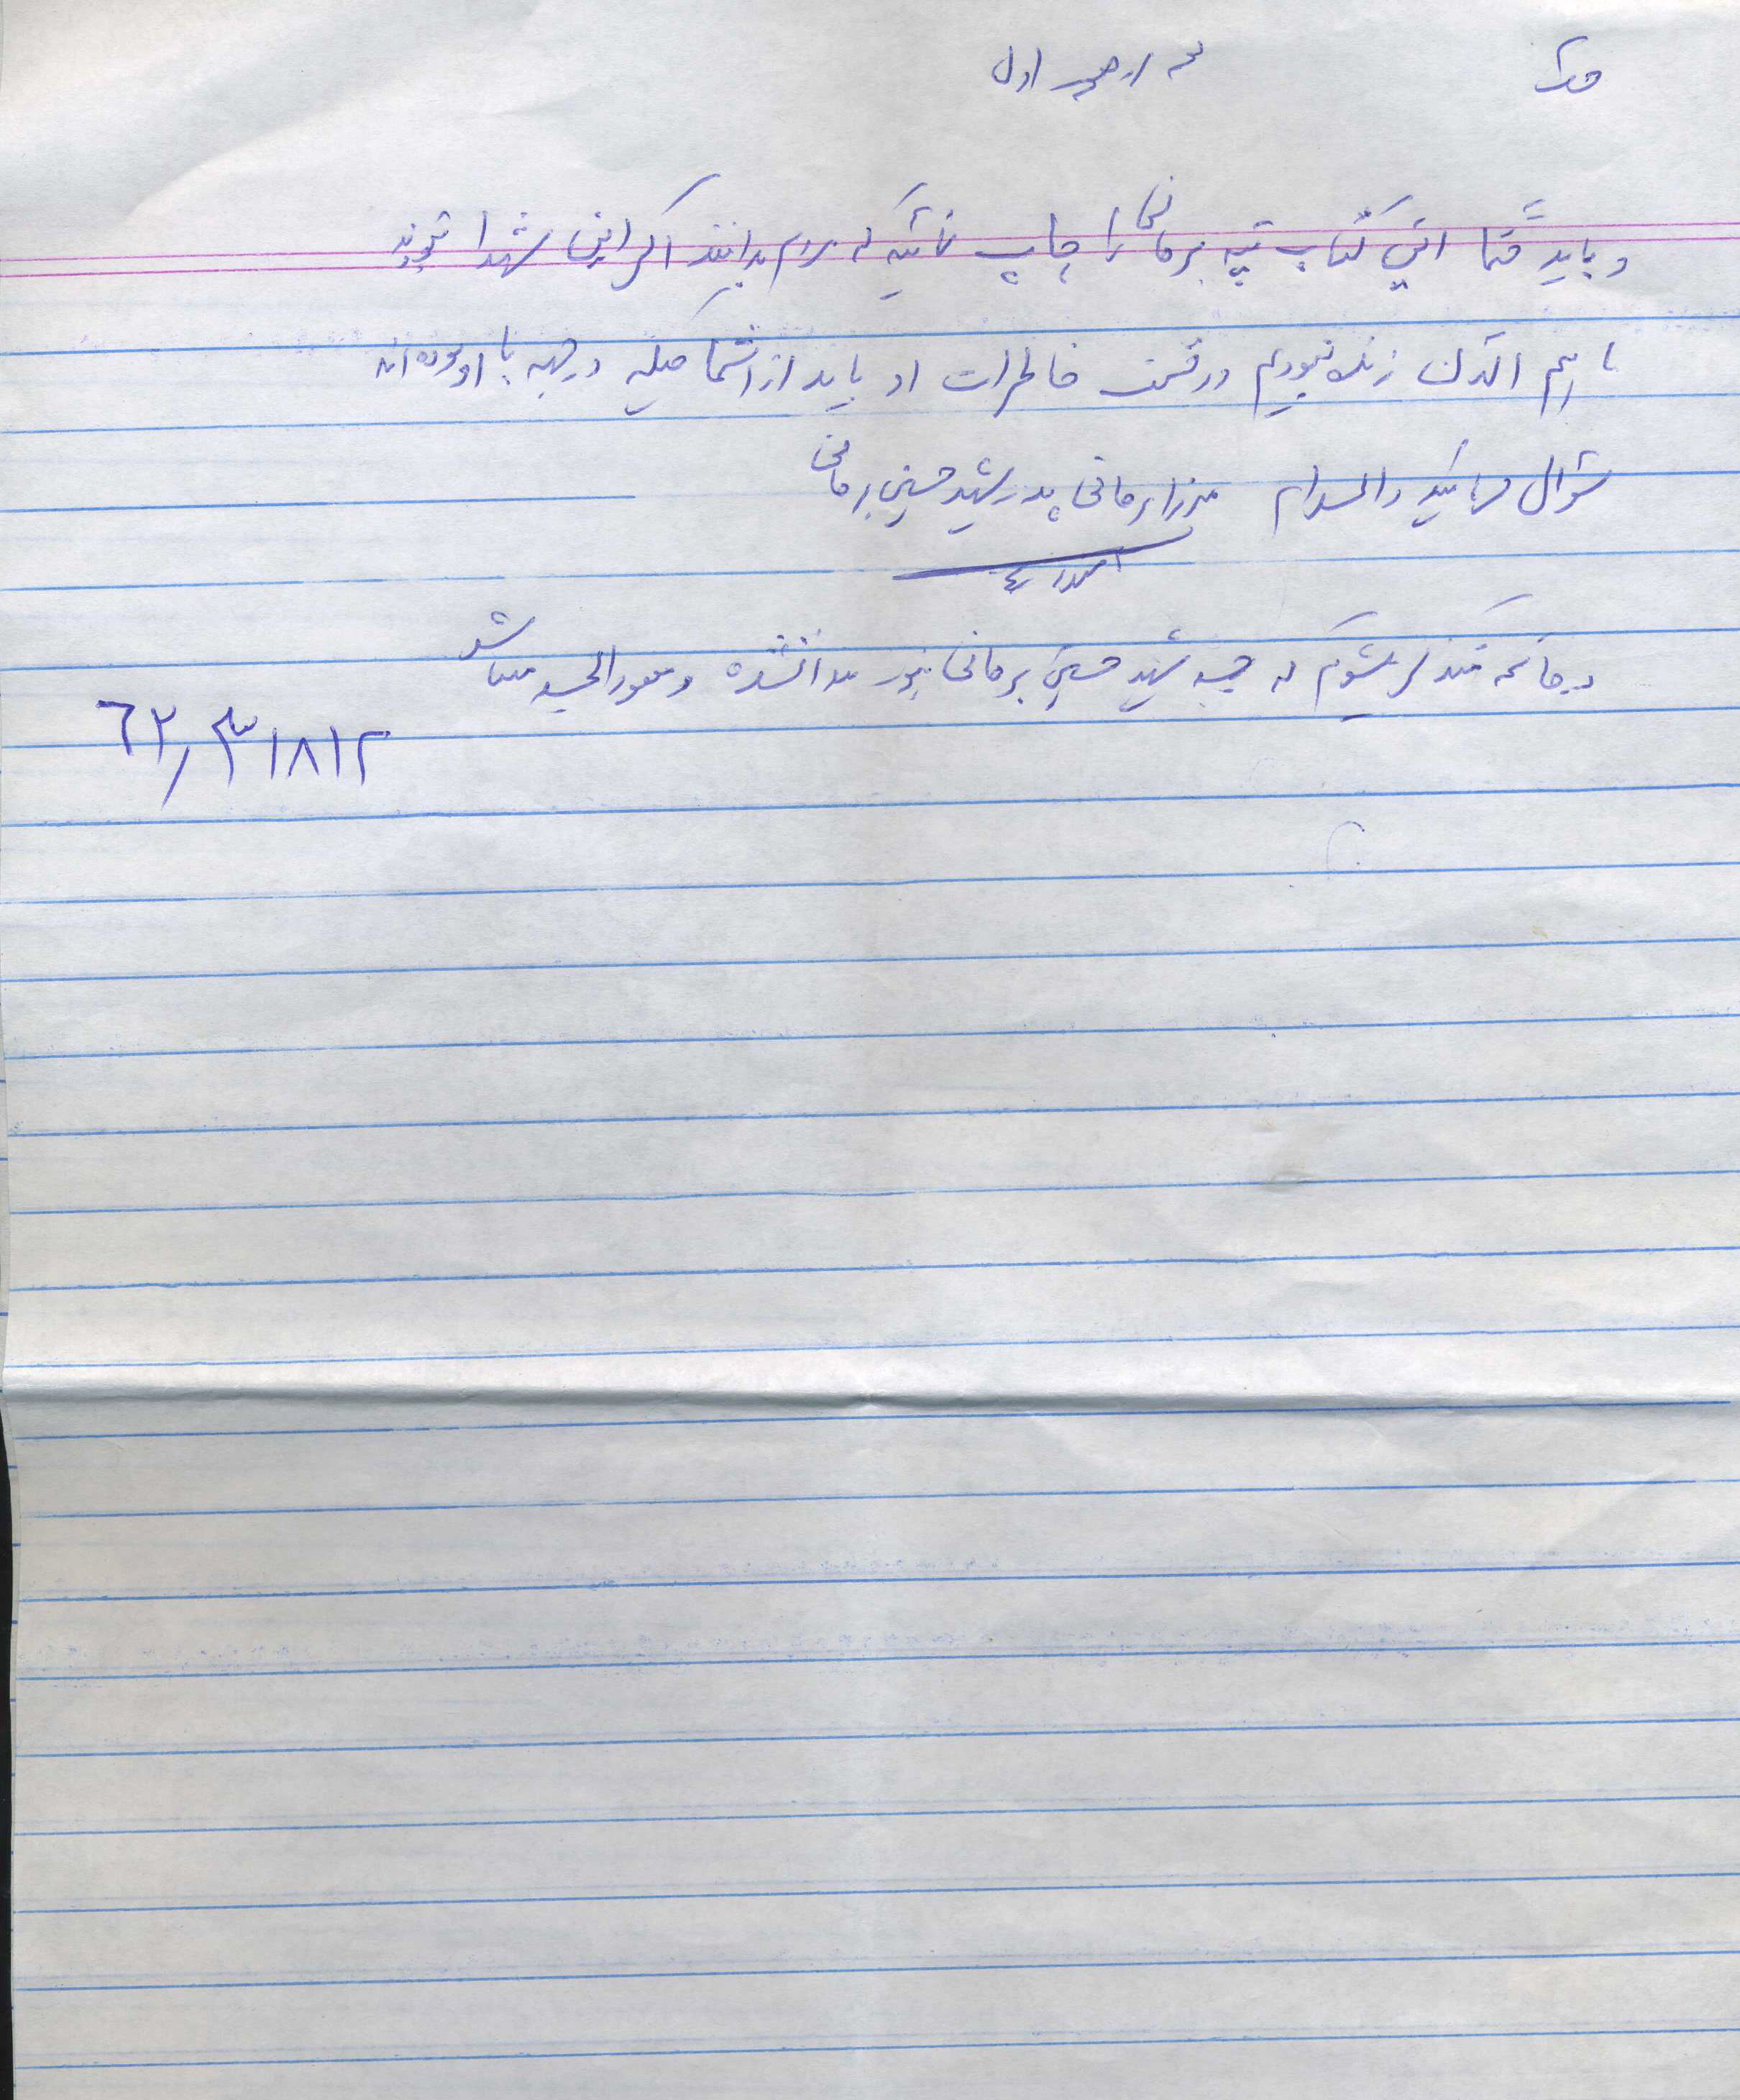 و باید حتما این کتاب تپه برهانی را چاپ نمائید که مردم بدانند اگر این شهدا نبودند
ما هم الان زنده نبودیم در قسمت خاطرات او باید از اشخاصیکه در جبهه با او بوده اند
سئوال فرمائید والسلام میرزا برهانی پدر شهید حسین برهانی
در خاتمه متذکر میشوم که جسد شهید حسین برهانی هنوز پیدا نشده و مفقود الجسد میباشد
٦٢/٣/٨١٢